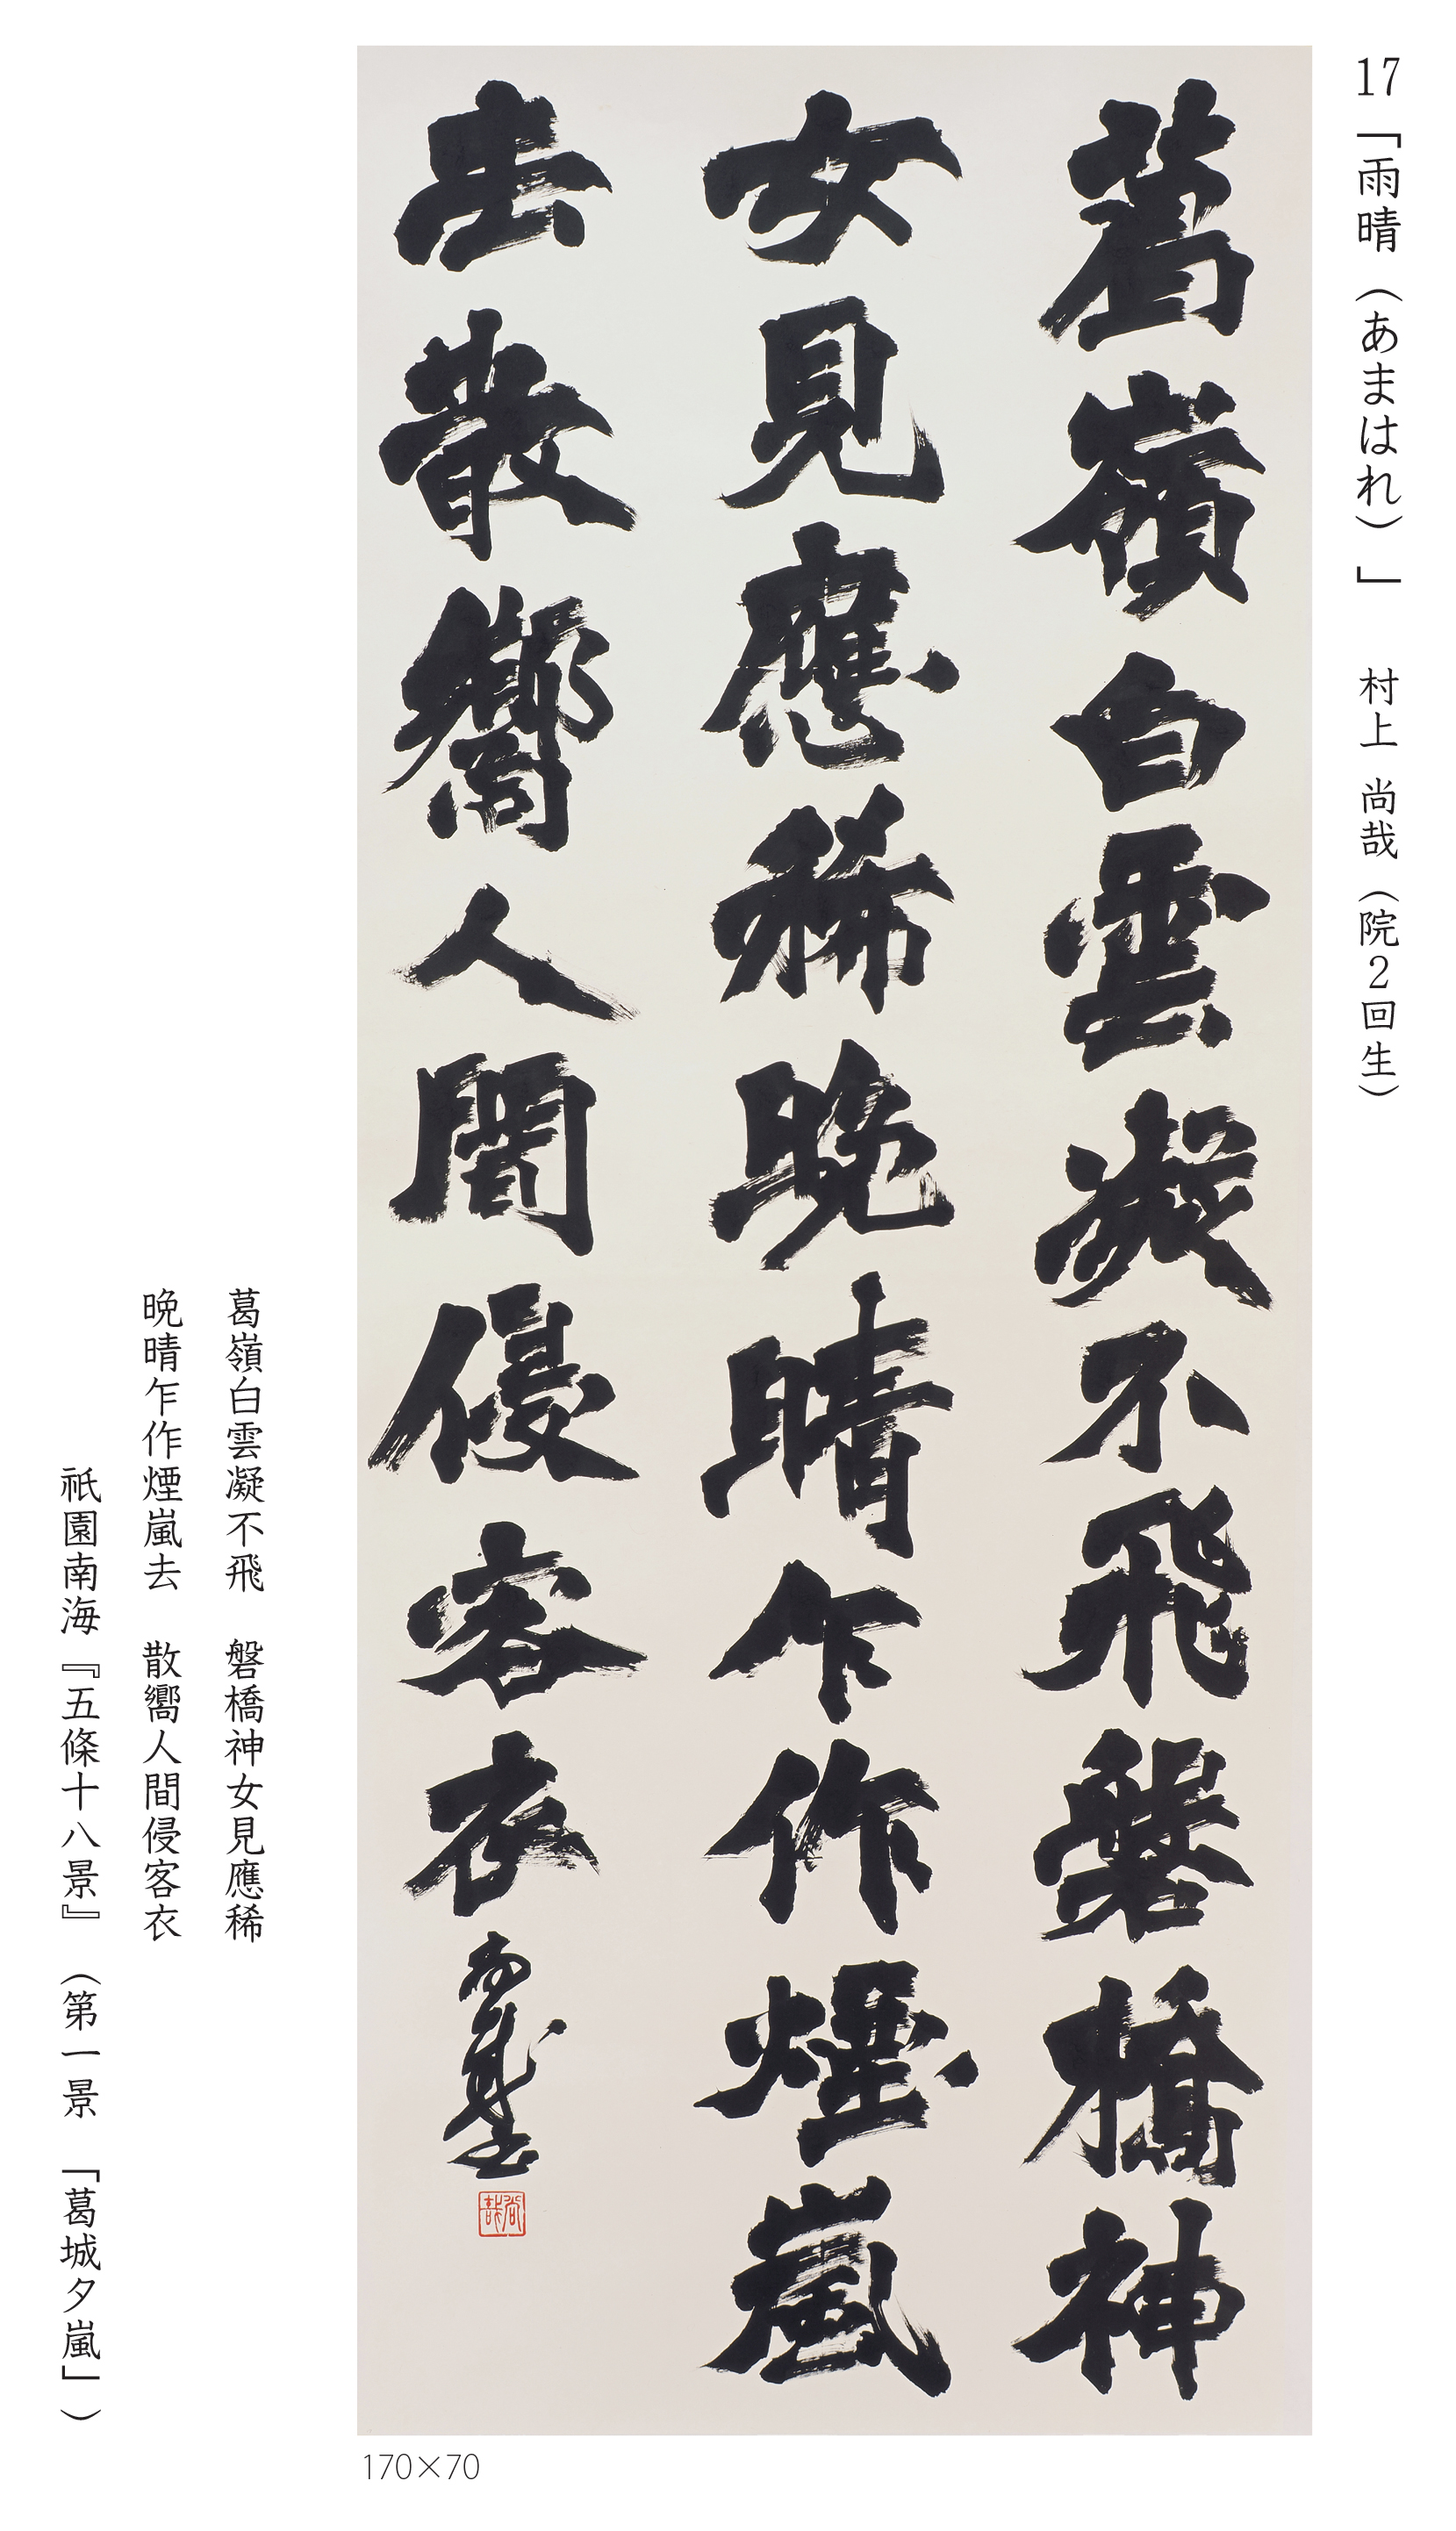 17「雨晴（あまはれ）」　村上 尚哉（院2回生）
葛嶺白雲凝不飛磐橋神
女見應稀晩晴乍作煙嵐
去散嚮人間侵客衣
尚哉
葛嶺白雲凝不飛　磐橋神女見應稀
晩晴乍作煙嵐去　散嚮人間侵客衣
祇園南海『五條十八景』（第一景　「葛城夕嵐」）
170×70